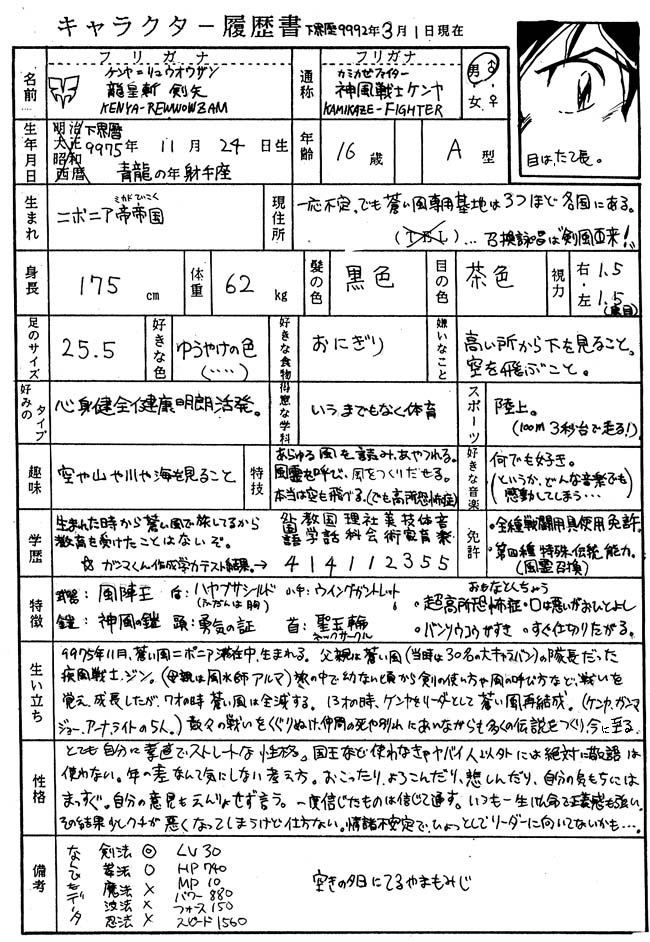 キャラクター履歴書 下界暦9992年3月1日現在
フリガナ
ケンヤ=リュウオウザン
名前
龍皇斬 剣矢
KENYA-REWWOWZAM
フリガナ
カミカゼファイター
通称
神風戦士ケンヤ
KAMIKAZE-FIGHTER
男・女
♂・♀
目は、たて長。
生年月日
明治
大正
昭和
西暦
下界暦
9975年 11月 24日生
青龍の年射手座
年齢
16歳
A型
生まれ
ミカドていこく
ニポニア帝帝国
現住所
一応不定、でも蒼い風専用基地は3つほど各国にある。
(TEL)…召換詠唱は"剣風再来!"
身長
175cm
体重
62kg
髪の色
黒色
目の色
茶色
視力
右1.5
・
左1.5
足のサイズ
25.5
好きな色
ゆうやけの色
(‥‥‥)
好きな食物
おにぎり
嫌いなこと
高い所から下を見ること。
空を飛ぶこと。
好みのタイプ
心身健全健康明朗活発。
得意な学科
いうまでもなく体育
スポーツ
陸上。
(100m 3秒台で走る!)
趣味
空や山や川や海を見ること
特技
あらゆる風を読み、あやつれる。
風霊を呼び、風をつくりだせる。
本当は空も飛べる。(でも高所恐怖症)
好きな音楽
何でも好き。
(というか、どんな音楽でも
感動してしまう…)
学歴
生まれた時から蒼い風で旅してるから
教育を受けたことはないぞ。
☆ ガンマくん作成学力テスト結果。→
外語 数学 国語 理科 社会 美術 技家 体育 音楽
4 1 4 1 1 2 3 5 5
免許
・全種戦闘用具使用免許。
・第四種特殊伝統能力。
(風霊召換)
特徴
武器:風陣王 盾:ハヤブサシールド 小手:ウイングガントレット
(ふだんは胸)
鎧:神風の鎧 頭:勇気の証 首:聖王輪
ネックサークル
おもなとくちょう
・超高所恐怖症・口は悪いがおひとよし
・バンソウコウがすき ・すぐ仕切りたがる。
生い立ち
9975年11月、蒼い風ニポニア滞在中、生まれる。父親は蒼い風(当時は30名の大キャラバン)の隊長だった
疾風戦士、ジン。(母親は風水師アルマ)旅の中で幼ない頃から剣の使い方や風の呼び方など、戦いを
覚え、成長したが、7才の時蒼い風は全滅する。13才の時、ケンヤをリーダーとして蒼い風再結成。(ケンヤ、ガンマ
ジョー、アーナ、ライトの5人。)数々の戦いをくぐりぬけ、仲間の死や別れにあいながらも多くの伝説をつくり、今に至る。
性格
とても自分に素直でストレートな性格。国王など使わなきゃヤバイ人以外には絶対に敬語は
使わない。年の差なんて気にしない考え方。おこったり、よろこんだり、悲しんだり、自分の気もちには
まっすぐ。自分の意見もえんりょせず言う。一度信じたものは信じて通す。いつも一生けん命で正義感も強い。
その結果少しクチが悪くなってしまうけど仕方ない。情緒不安定で、ひょっとしてリーダーに向いてないかも…。
備考
なんでもデータ
剣法 ◎ LV 30
拳法 ○ HP 740
魔法 × MP 10
法法 × パワー 880
フォース 150
忍法 × スピード 1560
空きの夕日にてるやまもみじ